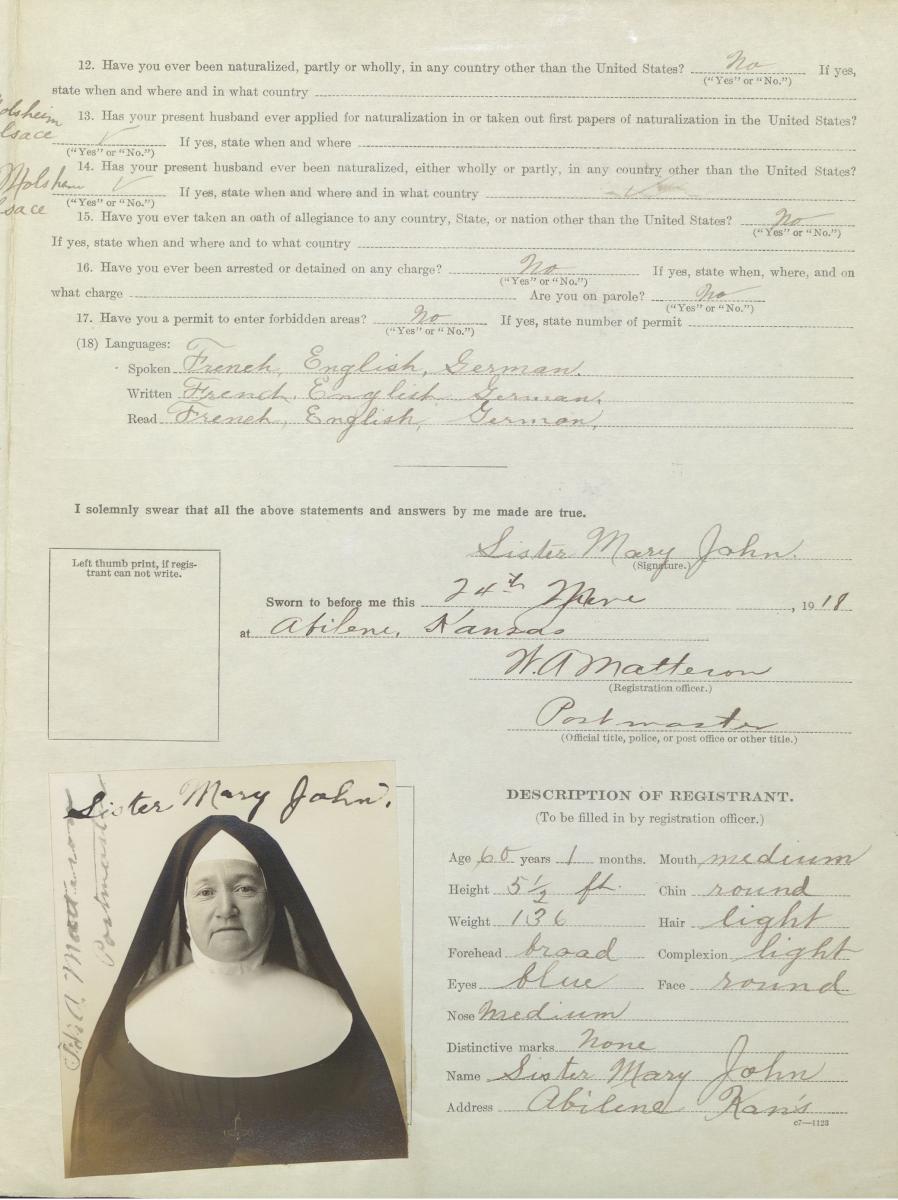 12. Have you ever been naturalized, partly or wholly, in any country other than the United States? No If yes,
("Yes" or "No.")
state when and where and in what country
olsheim
lsace
13. Has your present husband ever applied for naturalization in or taken out first papers of naturalization in the United States?
If yes, state when and where
("Yes" or "No.")
14. Has your present husband ever been naturalized, either wholly or partly, in any country other than the United States?
Molsheim
If yes, state when and where and in what country
("Yes" or "No.")
sace
15. Have you ever taken an oath of allegiance to any country, State, or nation other than the United States? No
("Yes" or "No.")
If yes, state when and where and to what country
16. Have you ever been arrested or detained on any charge? No If yes, state when, where, and on
("Yes" or "No.")
what charge Are you on parole? No
("Yes" or "No.")
17. Have you a permit to enter forbidden areas? No If yes, state number of permit
("Yes" or "No.")
(18) Languages:
Spoken French, English, German.
Written French, English German.
Read French, English, German,
I solemnly swear that all the above statements and answers by me made are true.
Sister Mary John.
(Signature.)
Left thumb print, if regis-
trant can not write.
Sworn to before me this 24th , 1918
at Abilene, Kansas
W.A Matteson
(Registration officer.)
Postmaster
(Official title, police, or post office or other title.)
Sister Mary John.
W.A. Matteson
Postmaster
DESCRIPTION OF REGISTRANT.
(To be filled in by registration officer.)
Age 60 years 1 months. Mouth medium
Height 5 1/2 ft. Chin round
Weight 136 Hair light
Forehead broad Complexion light
Eyes blue Face round
Nose Medium
Distinctive marks None
Name Sister Mary John
Address Abilene Kan's
c7—1123